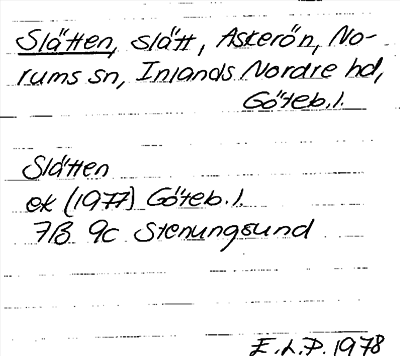 Slätten, slätt, Askerön, No-
rums sn, Inlands Nordre hd,
Göteb. l.
Slätten
ek (1977) Göteb. l.
7B 9c Stenungsund
E. L. P. 1978